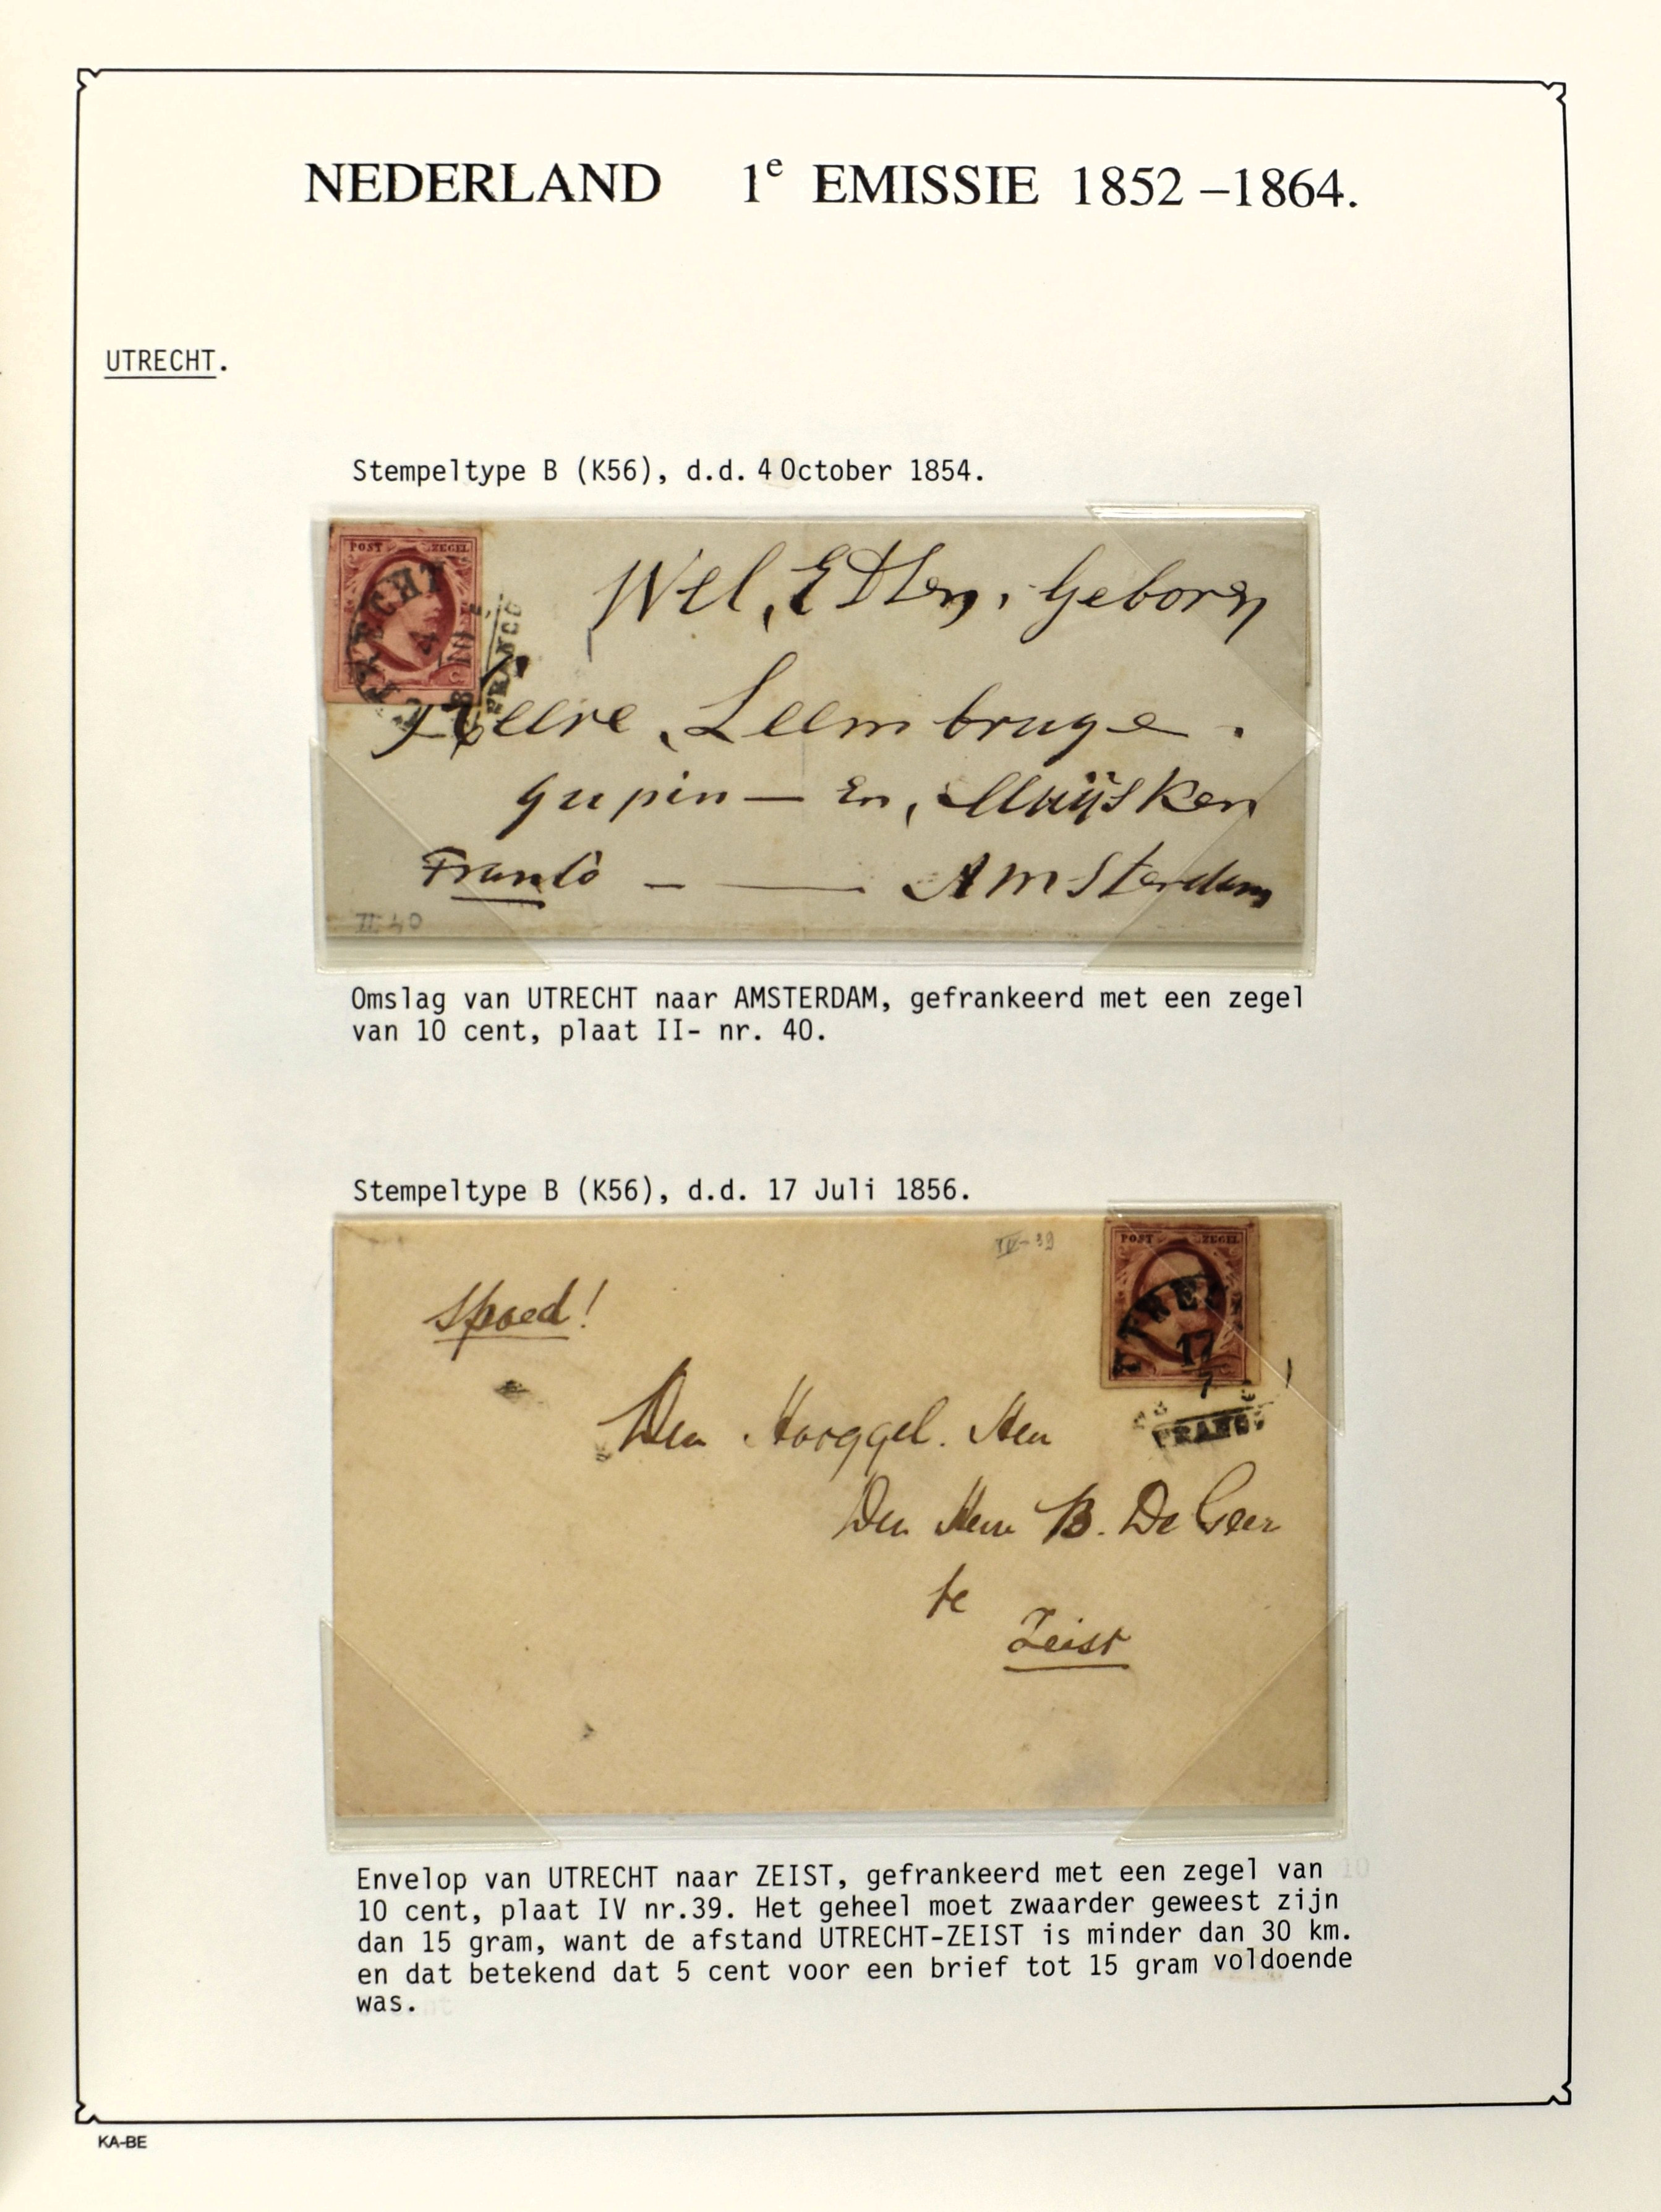 NEDERLAND 1e EMISSIE 1852-1864.
UTRECHT.
Stempeltype B (K56), d.d. 4 October 1854.
POST ZEGEL
UTRECHT
4
10
FRANCO
Wel, Geboren
Heere
Franco Amsterdam
II 40
Omslag van UTRECHT naar AMSTERDAM, gefrankeerd met een zegel
van 10 cent, plaat II- nr. 40.
Stempeltype B (K56), d.d. 17 Juli 1856.
IV-39
POST ZEGEL
UTRECHT
17
7
FRANCO
Spoed!
Den Hooggel. Heer
Den Heer B. De Geer
te
Zeist
Envelop van UTRECHT naar ZEIST, gefrankeerd met een zegel van
10 cent, plaat IV nr.39. Het geheel moet zwaarder geweest zijn
dan 15 gram, want de afstand UTRECHT-ZEIST is minder dan 30 km.
en dat betekend dat 5 cent voor een brief tot 15 gram voldoende
was.
KA-BE